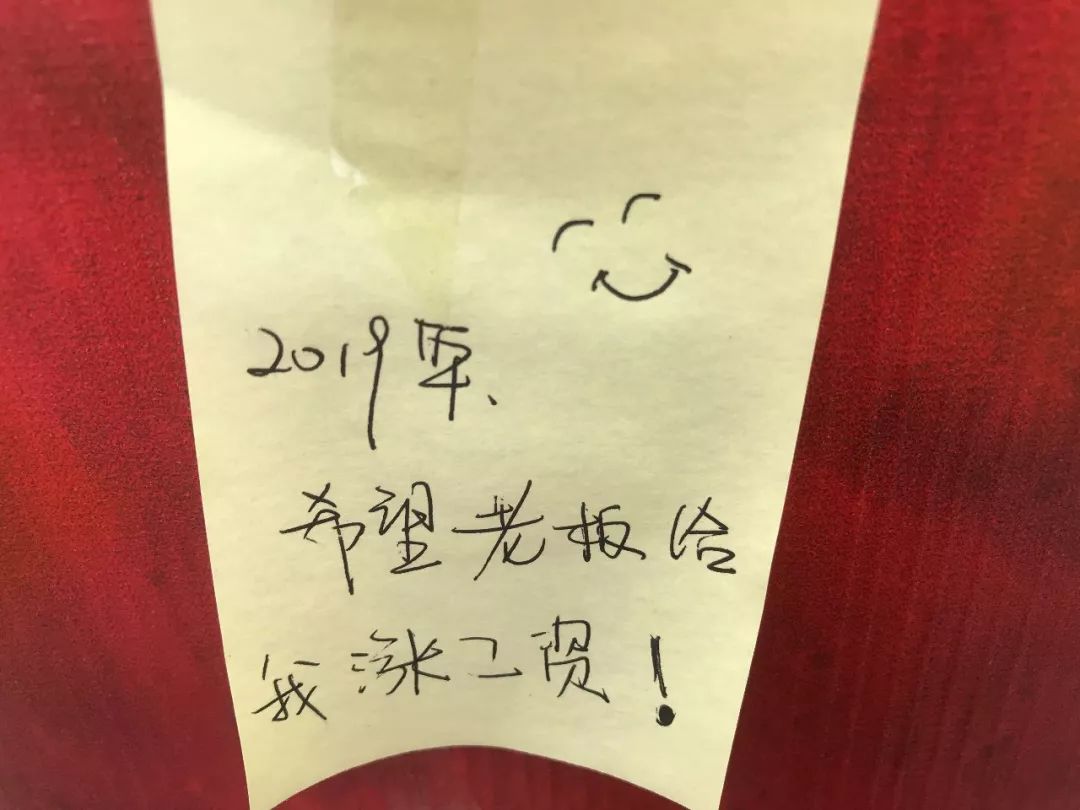 2019年、
希望老板给
我涨工资！